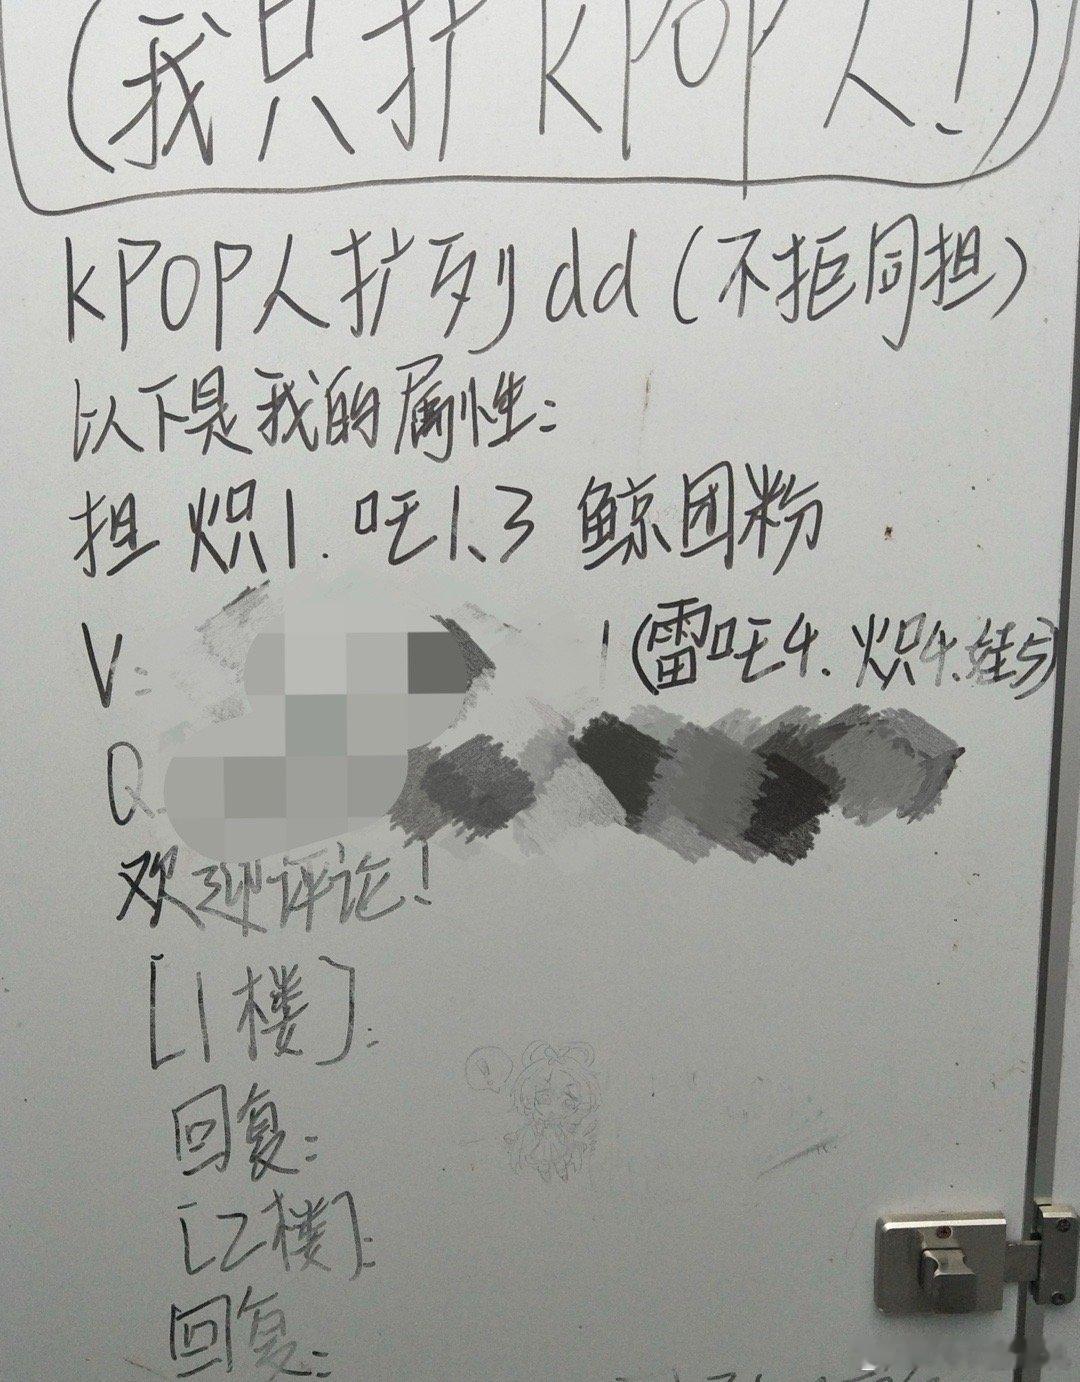 (我只扩KPOP人!)
KPOP人扩列dd(不拒同担)
以下是我的属性:
担 炽1.吒1、3 鲸团粉
V: (雷吒4.炽4.娃5)
Q
欢迎评论!
[1楼]:
回复:
[2楼]:
回复: